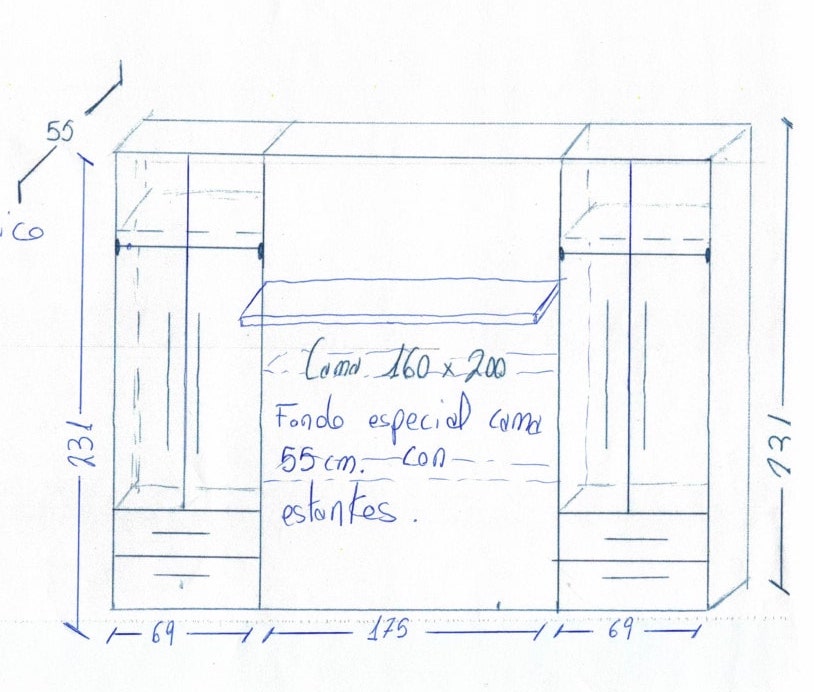 55
ico
231
231
Cama 160 x 200
Fondo especial cama
55 cm. con
estantes.
69
175
69